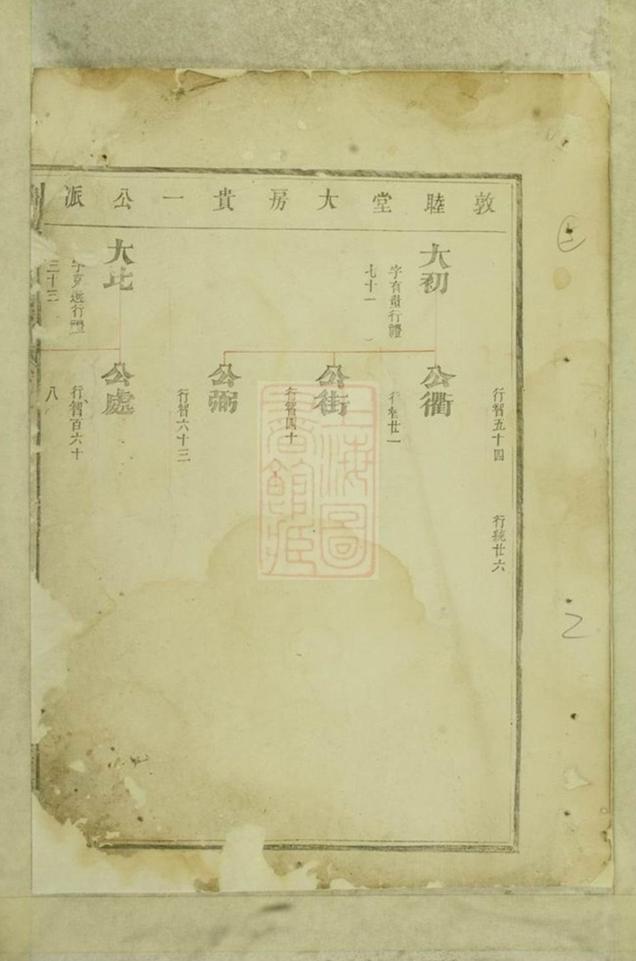 敦睦堂大房貴一公派
行智五十四
行統廿六
大初
字有
行禮
七十一
公衢
廿一
公街
行智四十
公弼
行智六十三
大北
行禮
三十三
公處
行智百六十
八
上海圖書館藏